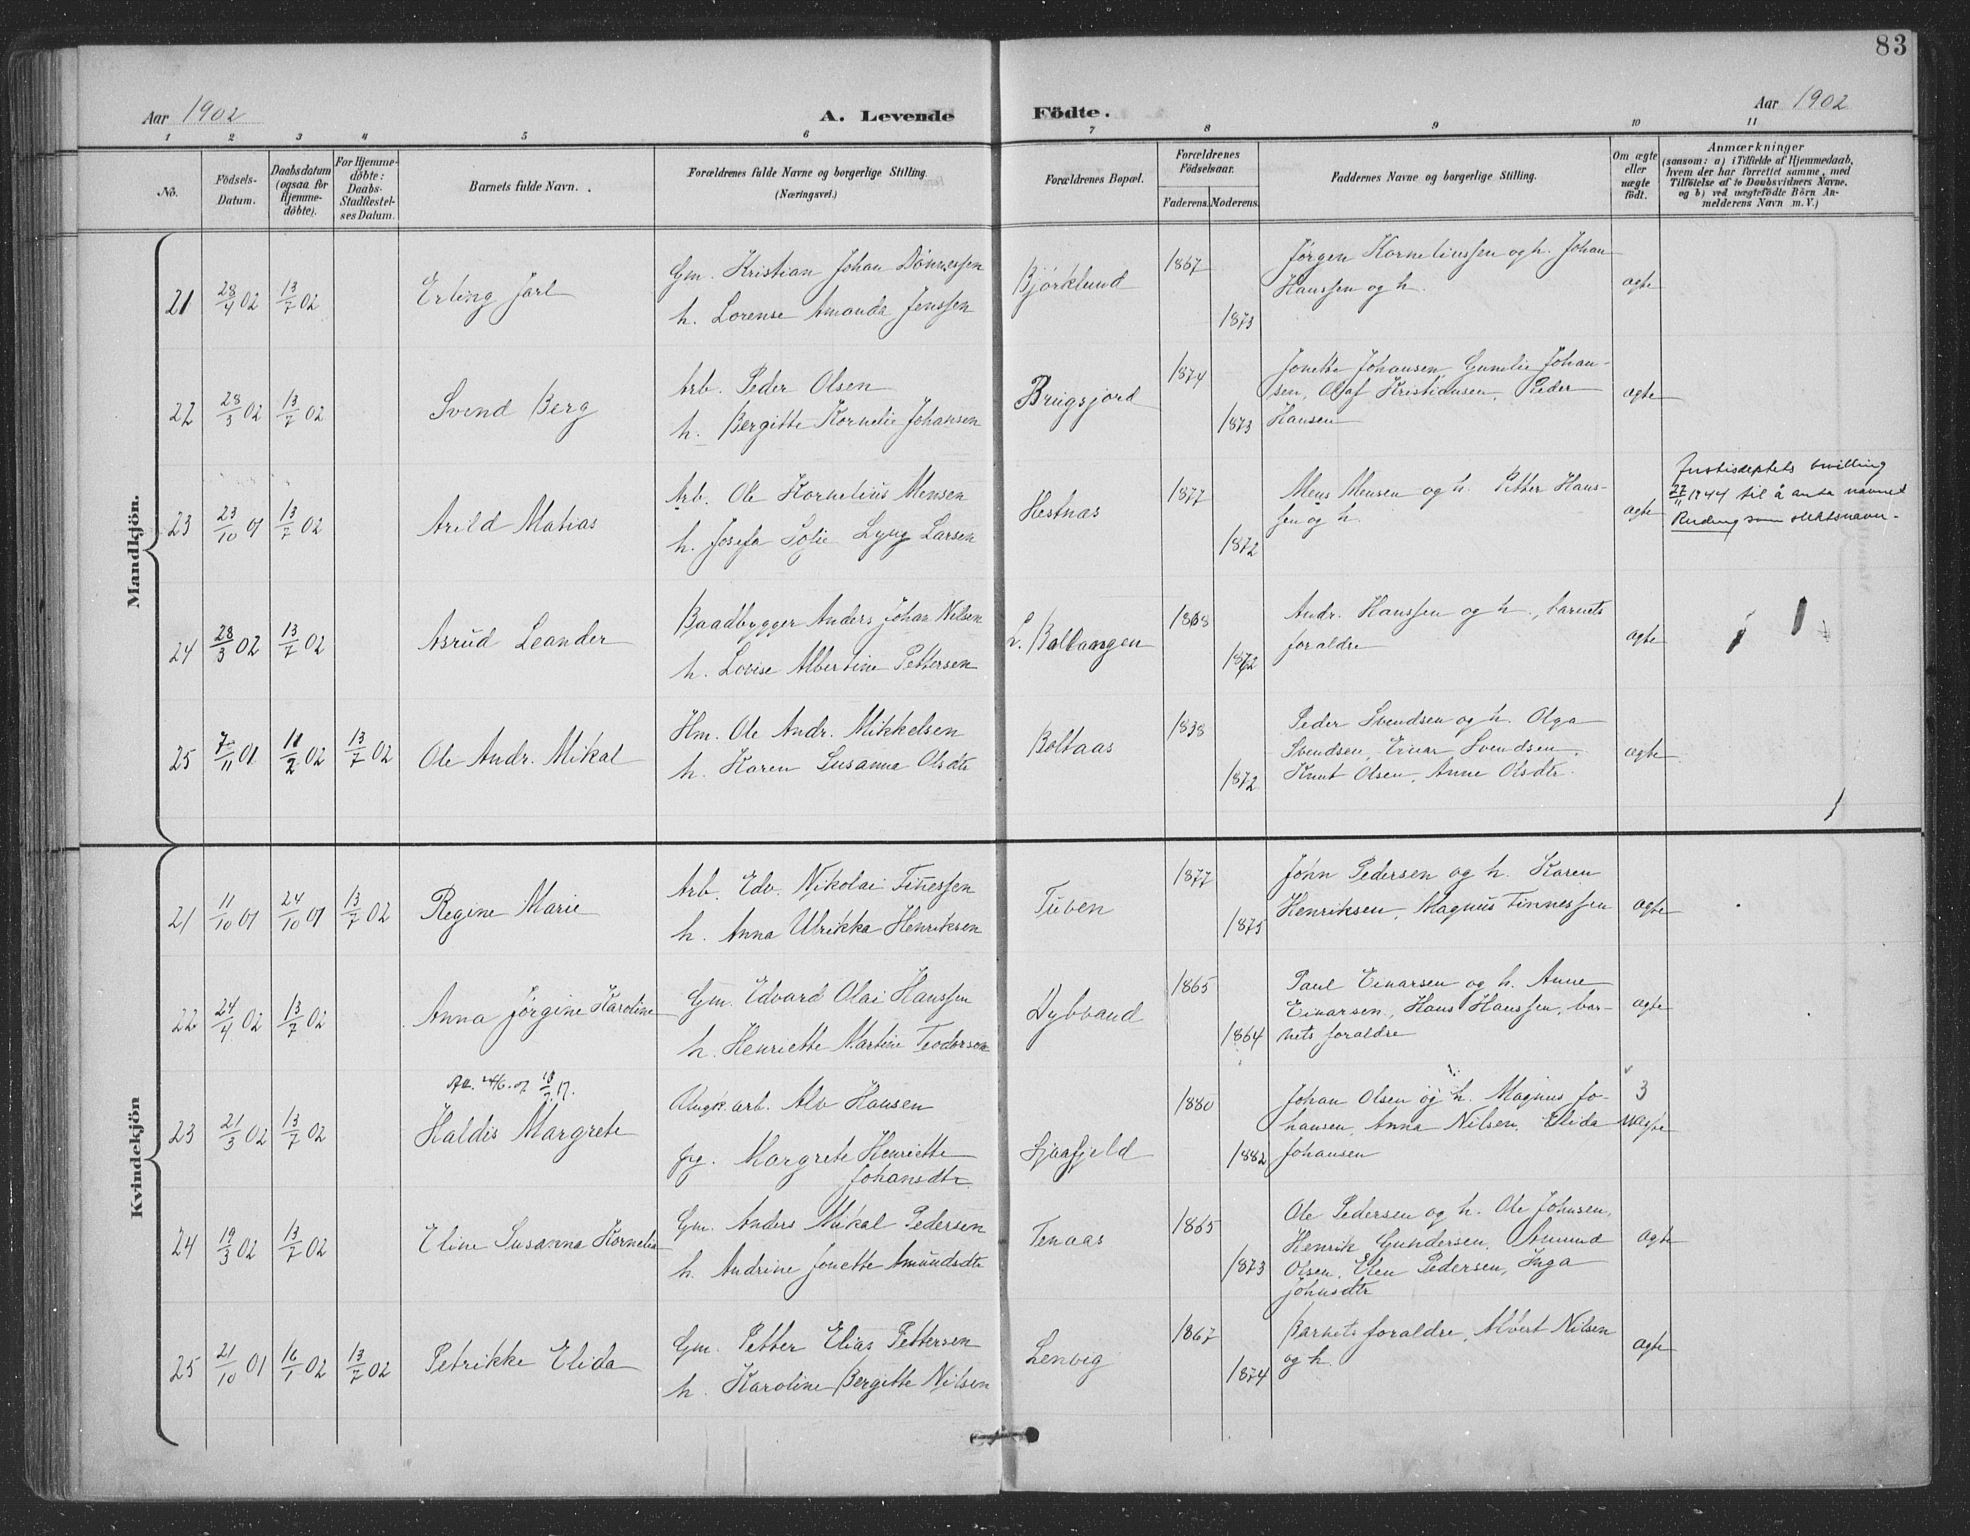 83
Aar 1902
A. Levende Födte.
Aar 1902
1 2 3 4 5 6 7 8 9 10 11
Nö.
Födsels-
Datum.
Daabsdatum
(ogsaa for
Hjemme-
döbte).
For Hjemme-
döbte:
Daabs-
Stadfæstel-
ses Datum.
Barnets fulde Navn.
Forældrenes fulde Navne og borgerlige Stilling.
(Næringsvei.)
Forældrenes Bopæl.
Forældrenes
Födselsaar.
Faderens. Moderens.
Faddernes Navne og borgerlige Stilling.
Om ægte
eller
uægte
födt.
Anmærkninger
(saasom: a) i Tilfælde af Hjemmedaab,
hvem der har forrettet samme, med
Tilföielse af to Daabsvidners Navne,
og b) ved uægtefödte Börn An-
melderens Navn m. V.)
Mandkjön.
21 28/4 02 13/7 02 Erling Jarl
Gm. Kristian Johan Dönnessen
h. Lorense Amanda Jenssen
Bjørklund 1867 1873
Jørgen Korneliussen og h. Johan
Hanssen og h.
ægte
22 28/3 02 13/7 02 Svend Berg
Arb. Peder Olsen
h. Bergitte Kornelie Johansen
Brugsjord 1874 1873
Jonette Johansen, Gunelie Johan-
sen, Olaf Kristiansen, Peder
Hansen
ægte
23 23/10 01 13/7 02 Arild Matias
Arb. Ole Kornelius Mensen
h. Josefa Sofie Lyng Larsen
Hestnæs 1877 1872
Mens Mensen og h. Petter Hans-
sen og h.
ægte
Justisdeptets bevilling
22/11 1944 til å anta navnet
Ruding som slektsnavn.
24 28/3 02 13/7 02 Asrud Leander
Baadbygger Anders Johan Nilsen
h. Lovise Albertine Pettersen
L. Ballangen 1868 1872
Andr. Hanssen og h., barnets
forældre
ægte
25 7/11 01 11/2 02 13/7 02 Ole Andr. Mikal
Hm. Ole Andr. Mikkelsen
h. Karen Susanna Olsdtr
Boltaas 1838 1872
Peder Svendsen og h. Olga
Svendsen, Einar Svendsen,
Knut Olsen, Anne Olsdtr.
ægte
Kvindekjön
21 11/10 01 24/10 01 13/7 02 Regine Marie
Arb. Edv. Nikolai Finessen
h. Anna Ulrikka Henriksen
Tuben 1877 1875
John Pedersen og h. Karen
Henriksen, Magnus Finnessen
ægte
22 24/4 02 13/7 02 Anna Jørgine Karoline
Gm. Edvard Olai Hanssen
h. Henriette Martine Teodorsen
Dybvand 1865 1864
Paul Einarsen og h. Anne
Einarsen, Hans Hanssen, bar-
nets forældre
ægte
23 21/3 02 13/7 02 Haldis Margrete
Ungk. arb. Alv Hansen
pg. Margrete Henriette
Johansdtr.
Sjaafjeld 1880 1882
Johan Olsen og h. Magnus Jo-
hansen, Anna Nilsen, Elida
Johansen
3
uægte
24 19/3 02 13/7 02 Eline Susanna Kornelia
Gm. Anders Mikal Pedersen
h. Andrine Jonette Amundsdtr
Tenaas 1865 1873
Ole Pedersen og h. Ole Johnsen,
Henrik Gundersen, Amund
Olsen, Elen Pedersen, Inga
Johnsdtr
ægte
25 21/10 01 16/1 02 13/7 02 Petrikke Elida
Gm. Petter Elias Pettersen
h. Karoline Bergitte Nilsen
Lenvig 1867 1874
Barnets forældre, Albert Nilsen
og h.
ægte